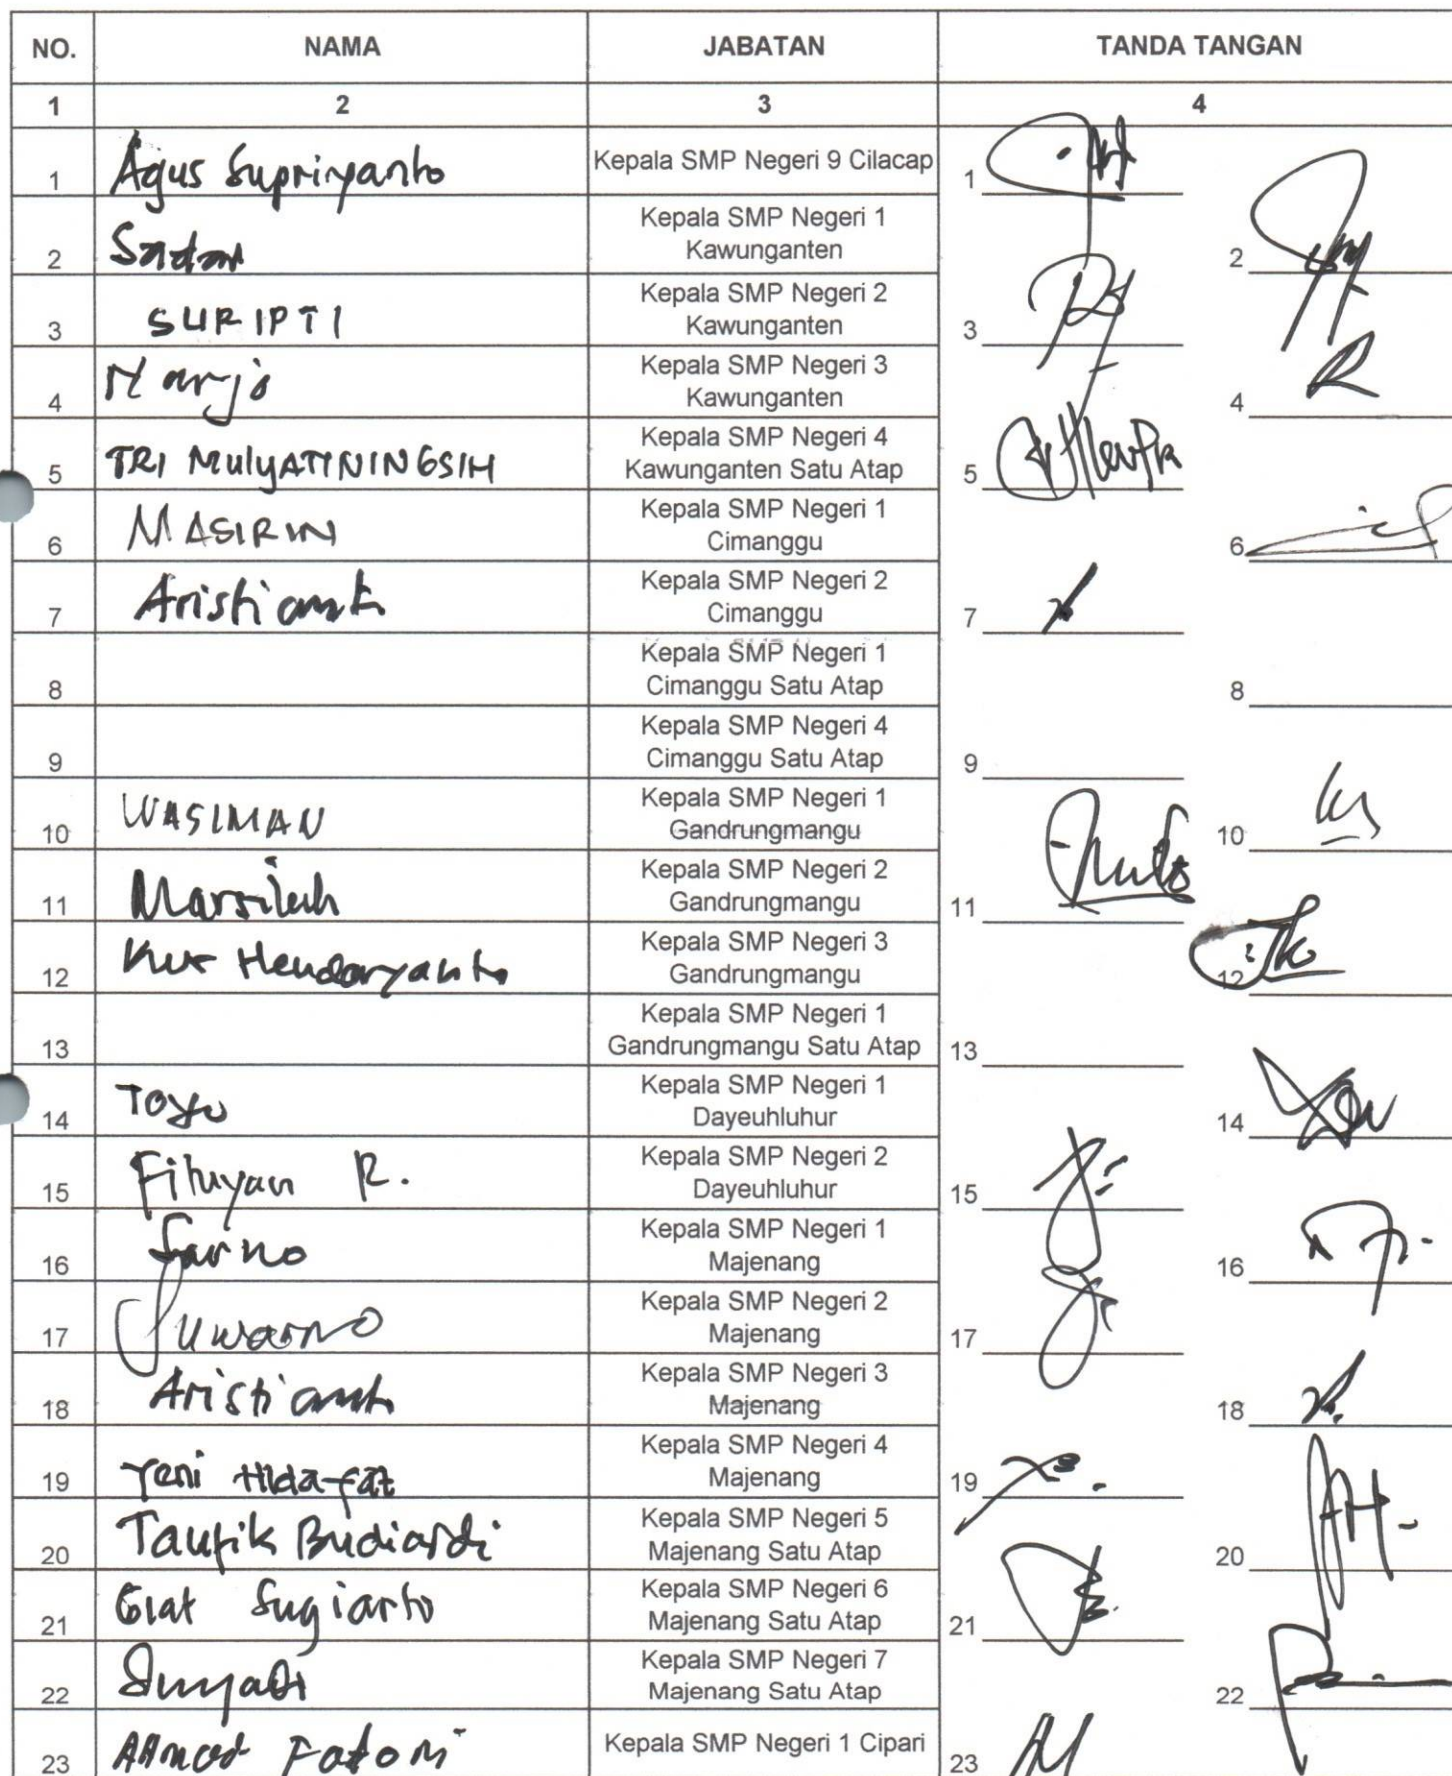 NO. NAMA JABATAN TANDA TANGAN
1 2 3 4
1 Agus Supriyanto Kepala SMP Negeri 9 Cilacap 1
2 Sadar Kepala SMP Negeri 1
Kawunganten 2
3 SURIPTI Kepala SMP Negeri 2
Kawunganten 3
4 Narjo Kepala SMP Negeri 3
Kawunganten 4
5 TRI MulyATININGSIH Kepala SMP Negeri 4
Kawunganten Satu Atap 5
6 MASIRIN Kepala SMP Negeri 1
Cimanggu 6
7 Aristianto Kepala SMP Negeri 2
Cimanggu 7
8 Kepala SMP Negeri 1
Cimanggu Satu Atap 8
9 Kepala SMP Negeri 4
Cimanggu Satu Atap 9
10 WASIMAN Kepala SMP Negeri 1
Gandrungmangu 10
11 Marsilah Kepala SMP Negeri 2
Gandrungmangu 11
12 Kus Hendaryanto Kepala SMP Negeri 3
Gandrungmangu 12
13 Kepala SMP Negeri 1
Gandrungmangu Satu Atap 13
14 Toyo Kepala SMP Negeri 1
Dayeuhluhur 14
15 R. Kepala SMP Negeri 2
Dayeuhluhur 15
16 Sarno Kepala SMP Negeri 1
Majenang 16
17 Suwarno Kepala SMP Negeri 2
Majenang 17
18 Aristianto Kepala SMP Negeri 3
Majenang 18
19 Yeni Hidayat Kepala SMP Negeri 4
Majenang 19
20 Taufik Budiardi Kepala SMP Negeri 5
Majenang Satu Atap 20
21 Giat Sugiarto Kepala SMP Negeri 6
Majenang Satu Atap 21
22 Sunyadi Kepala SMP Negeri 7
Majenang Satu Atap 22
23 AHmad Fatoni Kepala SMP Negeri 1 Cipari 23